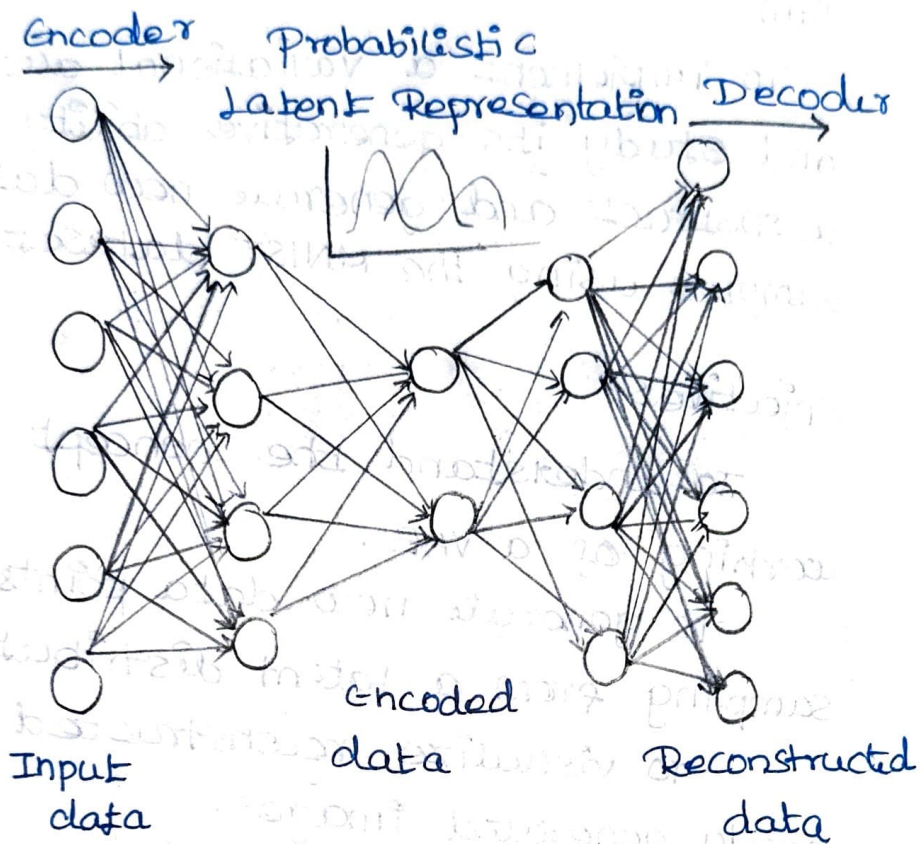 Encoder
Probabilistic
Latent Representation
Decoder
Encoded
data
Input
data
Reconstructed
data